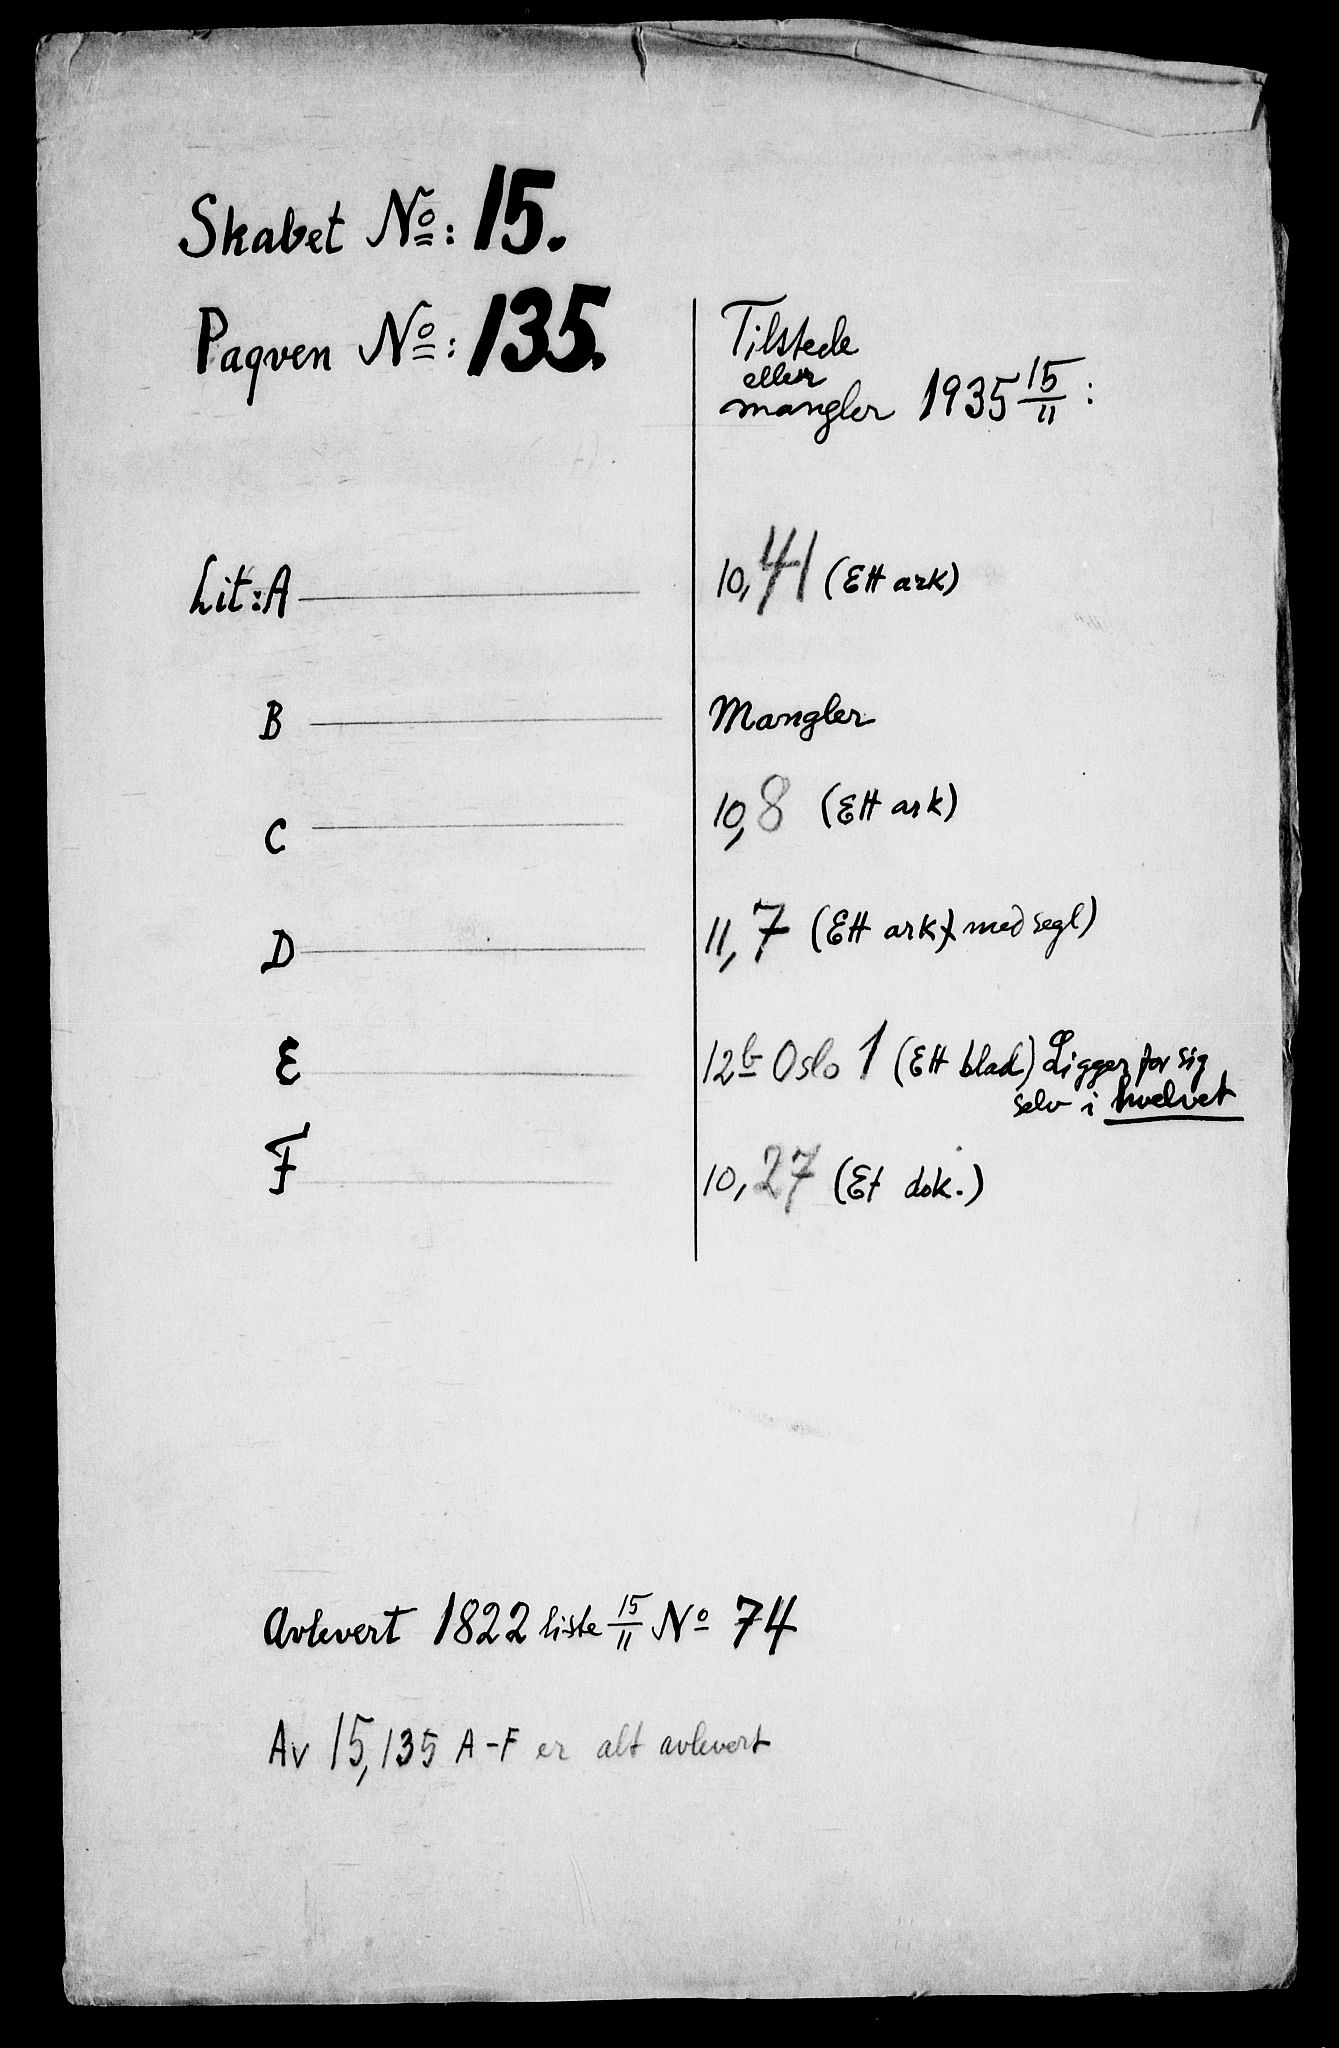 Skabet No: 15.
Paqven No: 135.
Tilstede
eller
mangler 1935 15/11:
Lit: A 10, 41 (Ett ark)
B Mangler
C 10, 8 (Ett ark)
D 11, 7 (Ett ark med segl)
E 12b Oslo 1 (Ett blad) Ligger for sig
selv i hvelvet
F 10, 27 (Et dok.)
Avlevert 1822 liste 15/11 No 74
Av 15, 135 A-F er alt avlevert